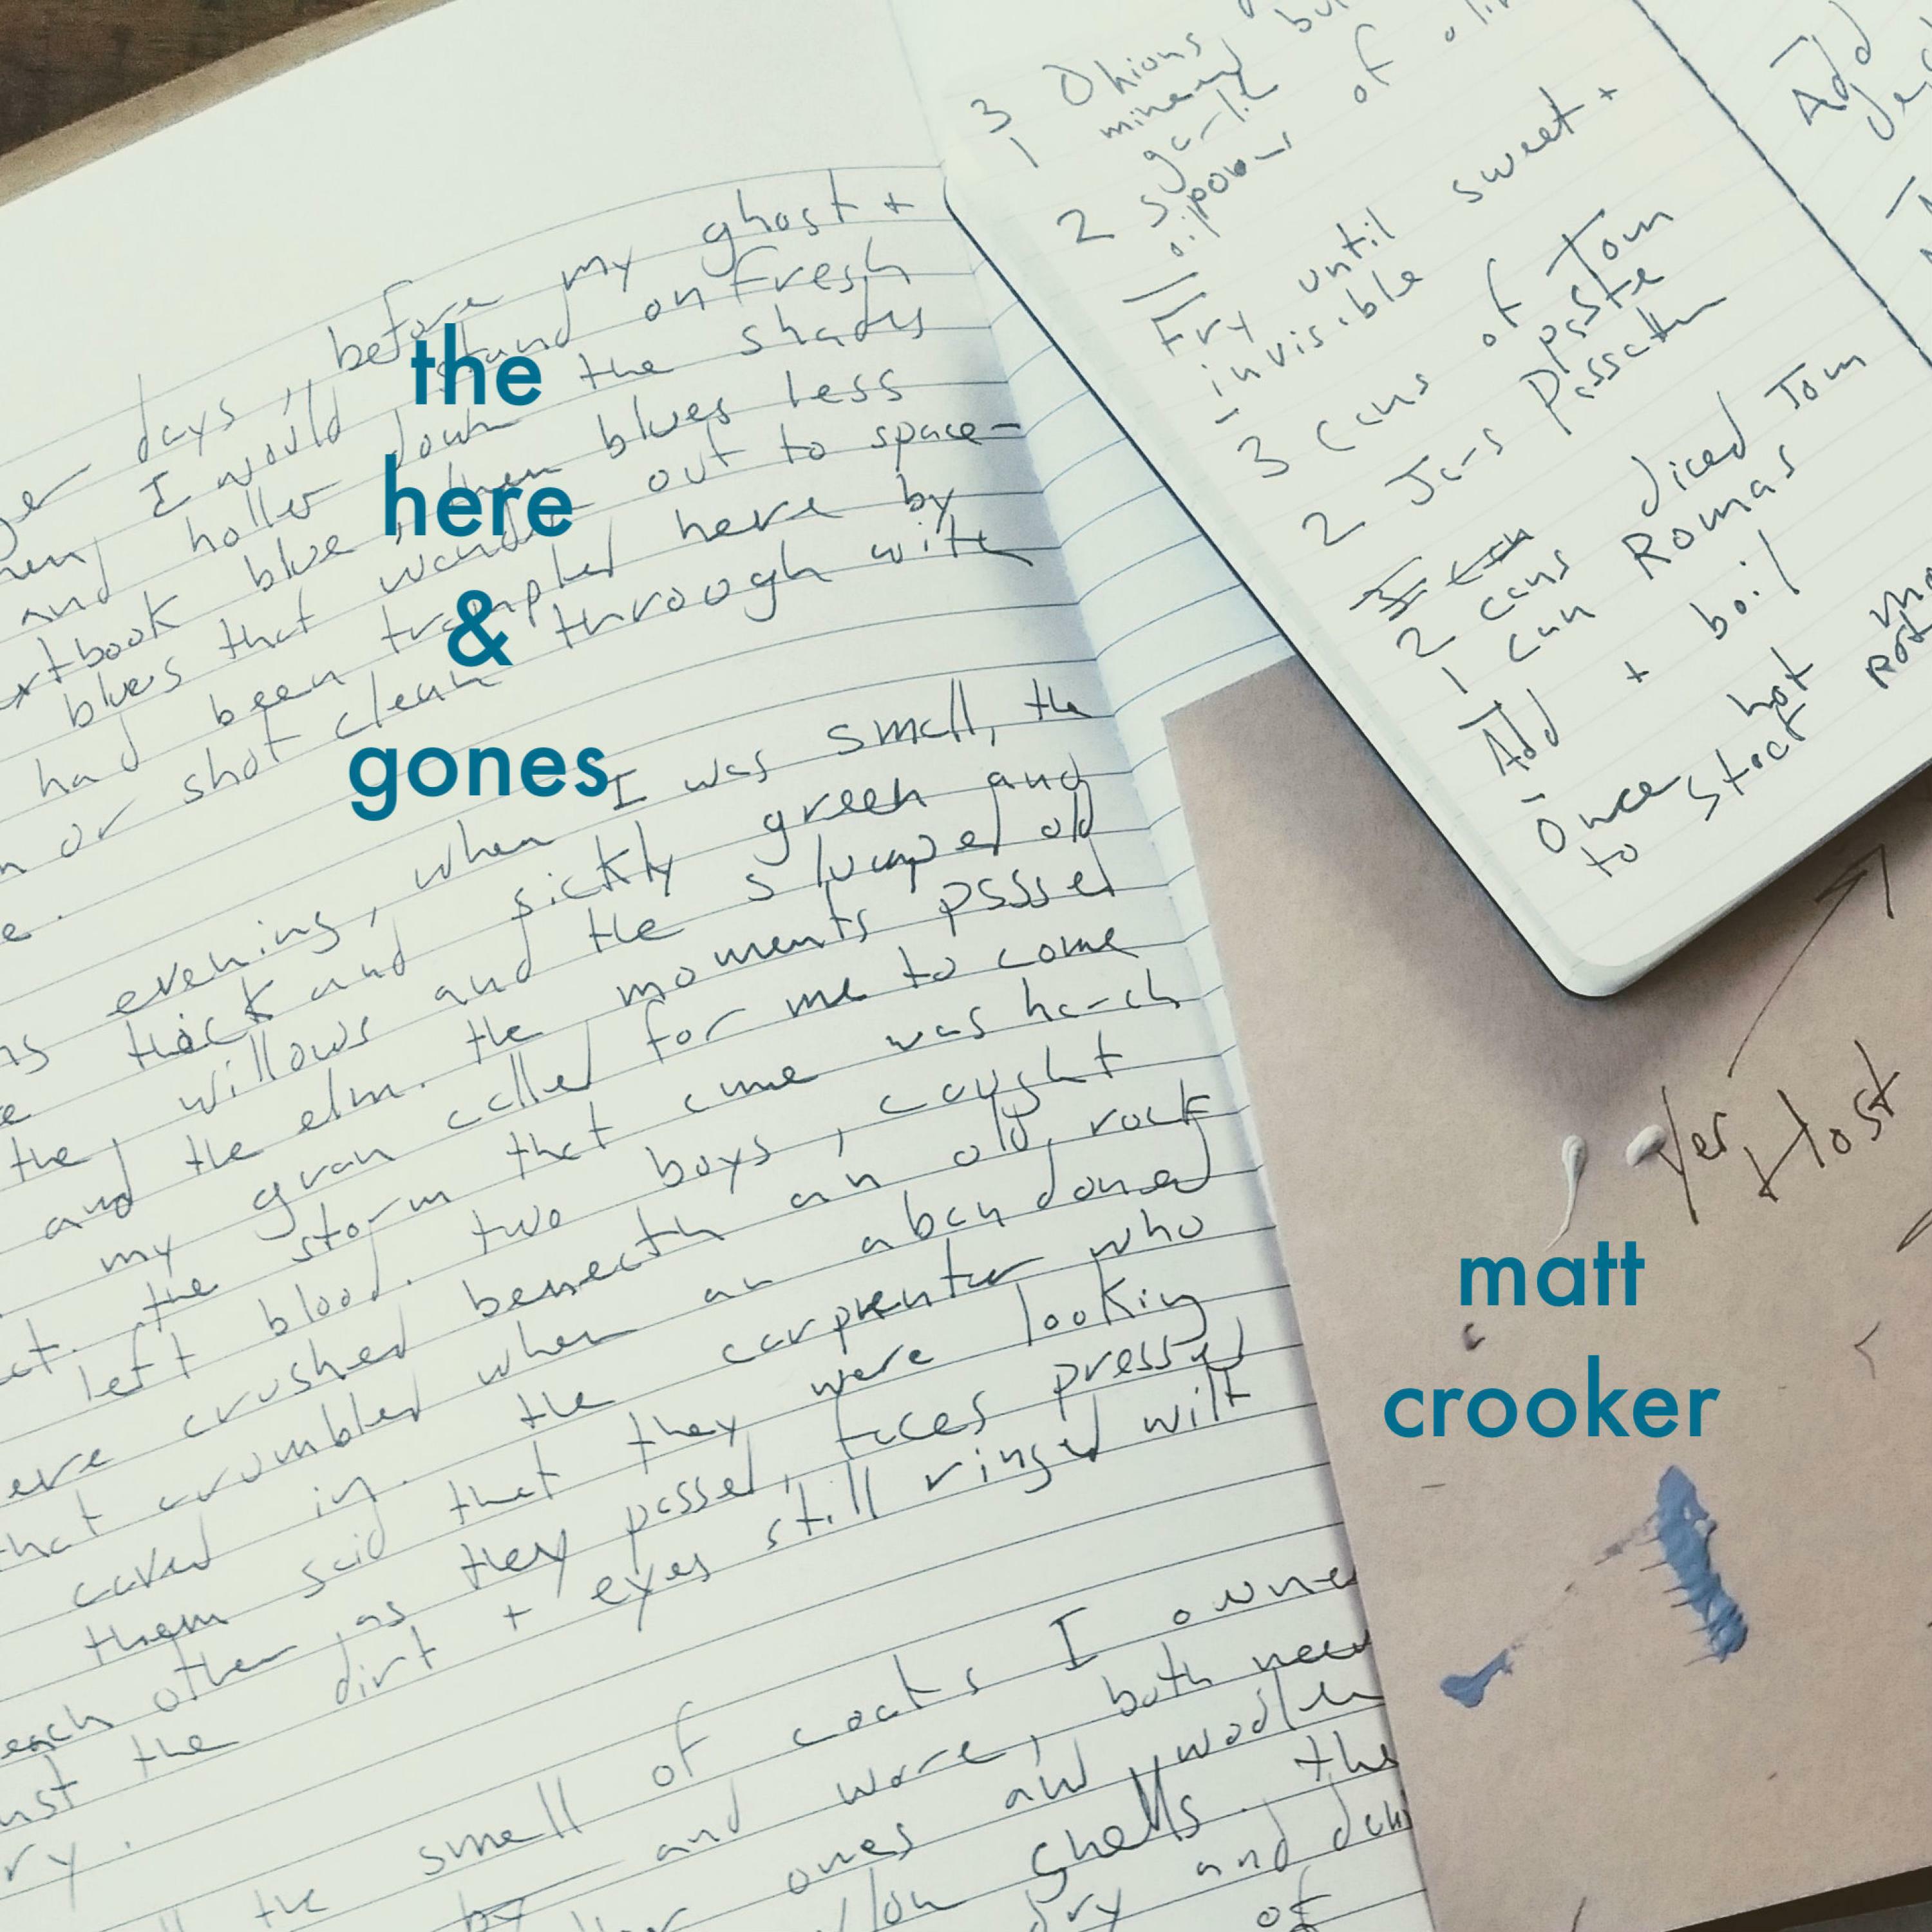 before my ghost +
days, I would stand on fresh
and holler down the shades
blue, then blues less
blues that wander out to space-
had been trampled here by
or shot clean through with
the
here
&
gones
evening, when I was small, the
thick and sickly green and
willows and the slumped old
the elm. the moments passed
and my gran called for me to come
the storm that came was harsh
left blood. two boys, caught
crushed beneath an old, rock
that crumbled when an abandoned
caved in. the carpenter who
them said that they were looking
each other as they passed, faces pressed
the dirt + eyes still ringed with
the smell of coats I
by and wore, both
ones and
shells. the
dry and
of
3 Onions
1 minced garlic
2 spoons of
oil
Fry until sweet +
invisible
-
3 cans of Tom
paste
2 Jars Passata
2 cans diced Tom
1 can Romas
Add + boil
-
Once hot
to start
Add
Yer Host
matt
crooker